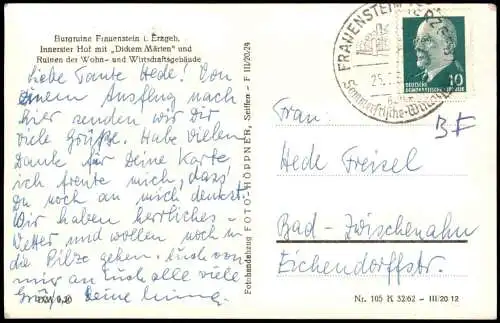 Burgruine Frauenstein i. Erzgeb.
Innerster Hof mit „Dickem Märten" und
Ruinen der Wohn- und Wirtschaftsgebäude
Liebe Tante Hede! Von
einem Ausflug nach
hier senden wir Dir
viele Grüße. Habe vielen
Dank für Deine Karte
ich freute mich, dass
Du noch an mich denkst.
Wir haben herrliches
Wetter und wollen noch in
die Pilze gehen. Auch von
mir an Euch alle viele
Grüße Deine
Fotohandelszug FOTO-HÖPPNER, Seiffen - F III/20/24
FRAUENSTEIN (ERZGEB)
25.
Sommerfrische-Wintersport
10
DEUTSCHE
DEMOKRATISCHE REPUBLIK
BF
Frau
Hede Freisel
Bad-Zwischenahn
Eichendorffstr.
Nr. 105 K 32/62 - III/20 12